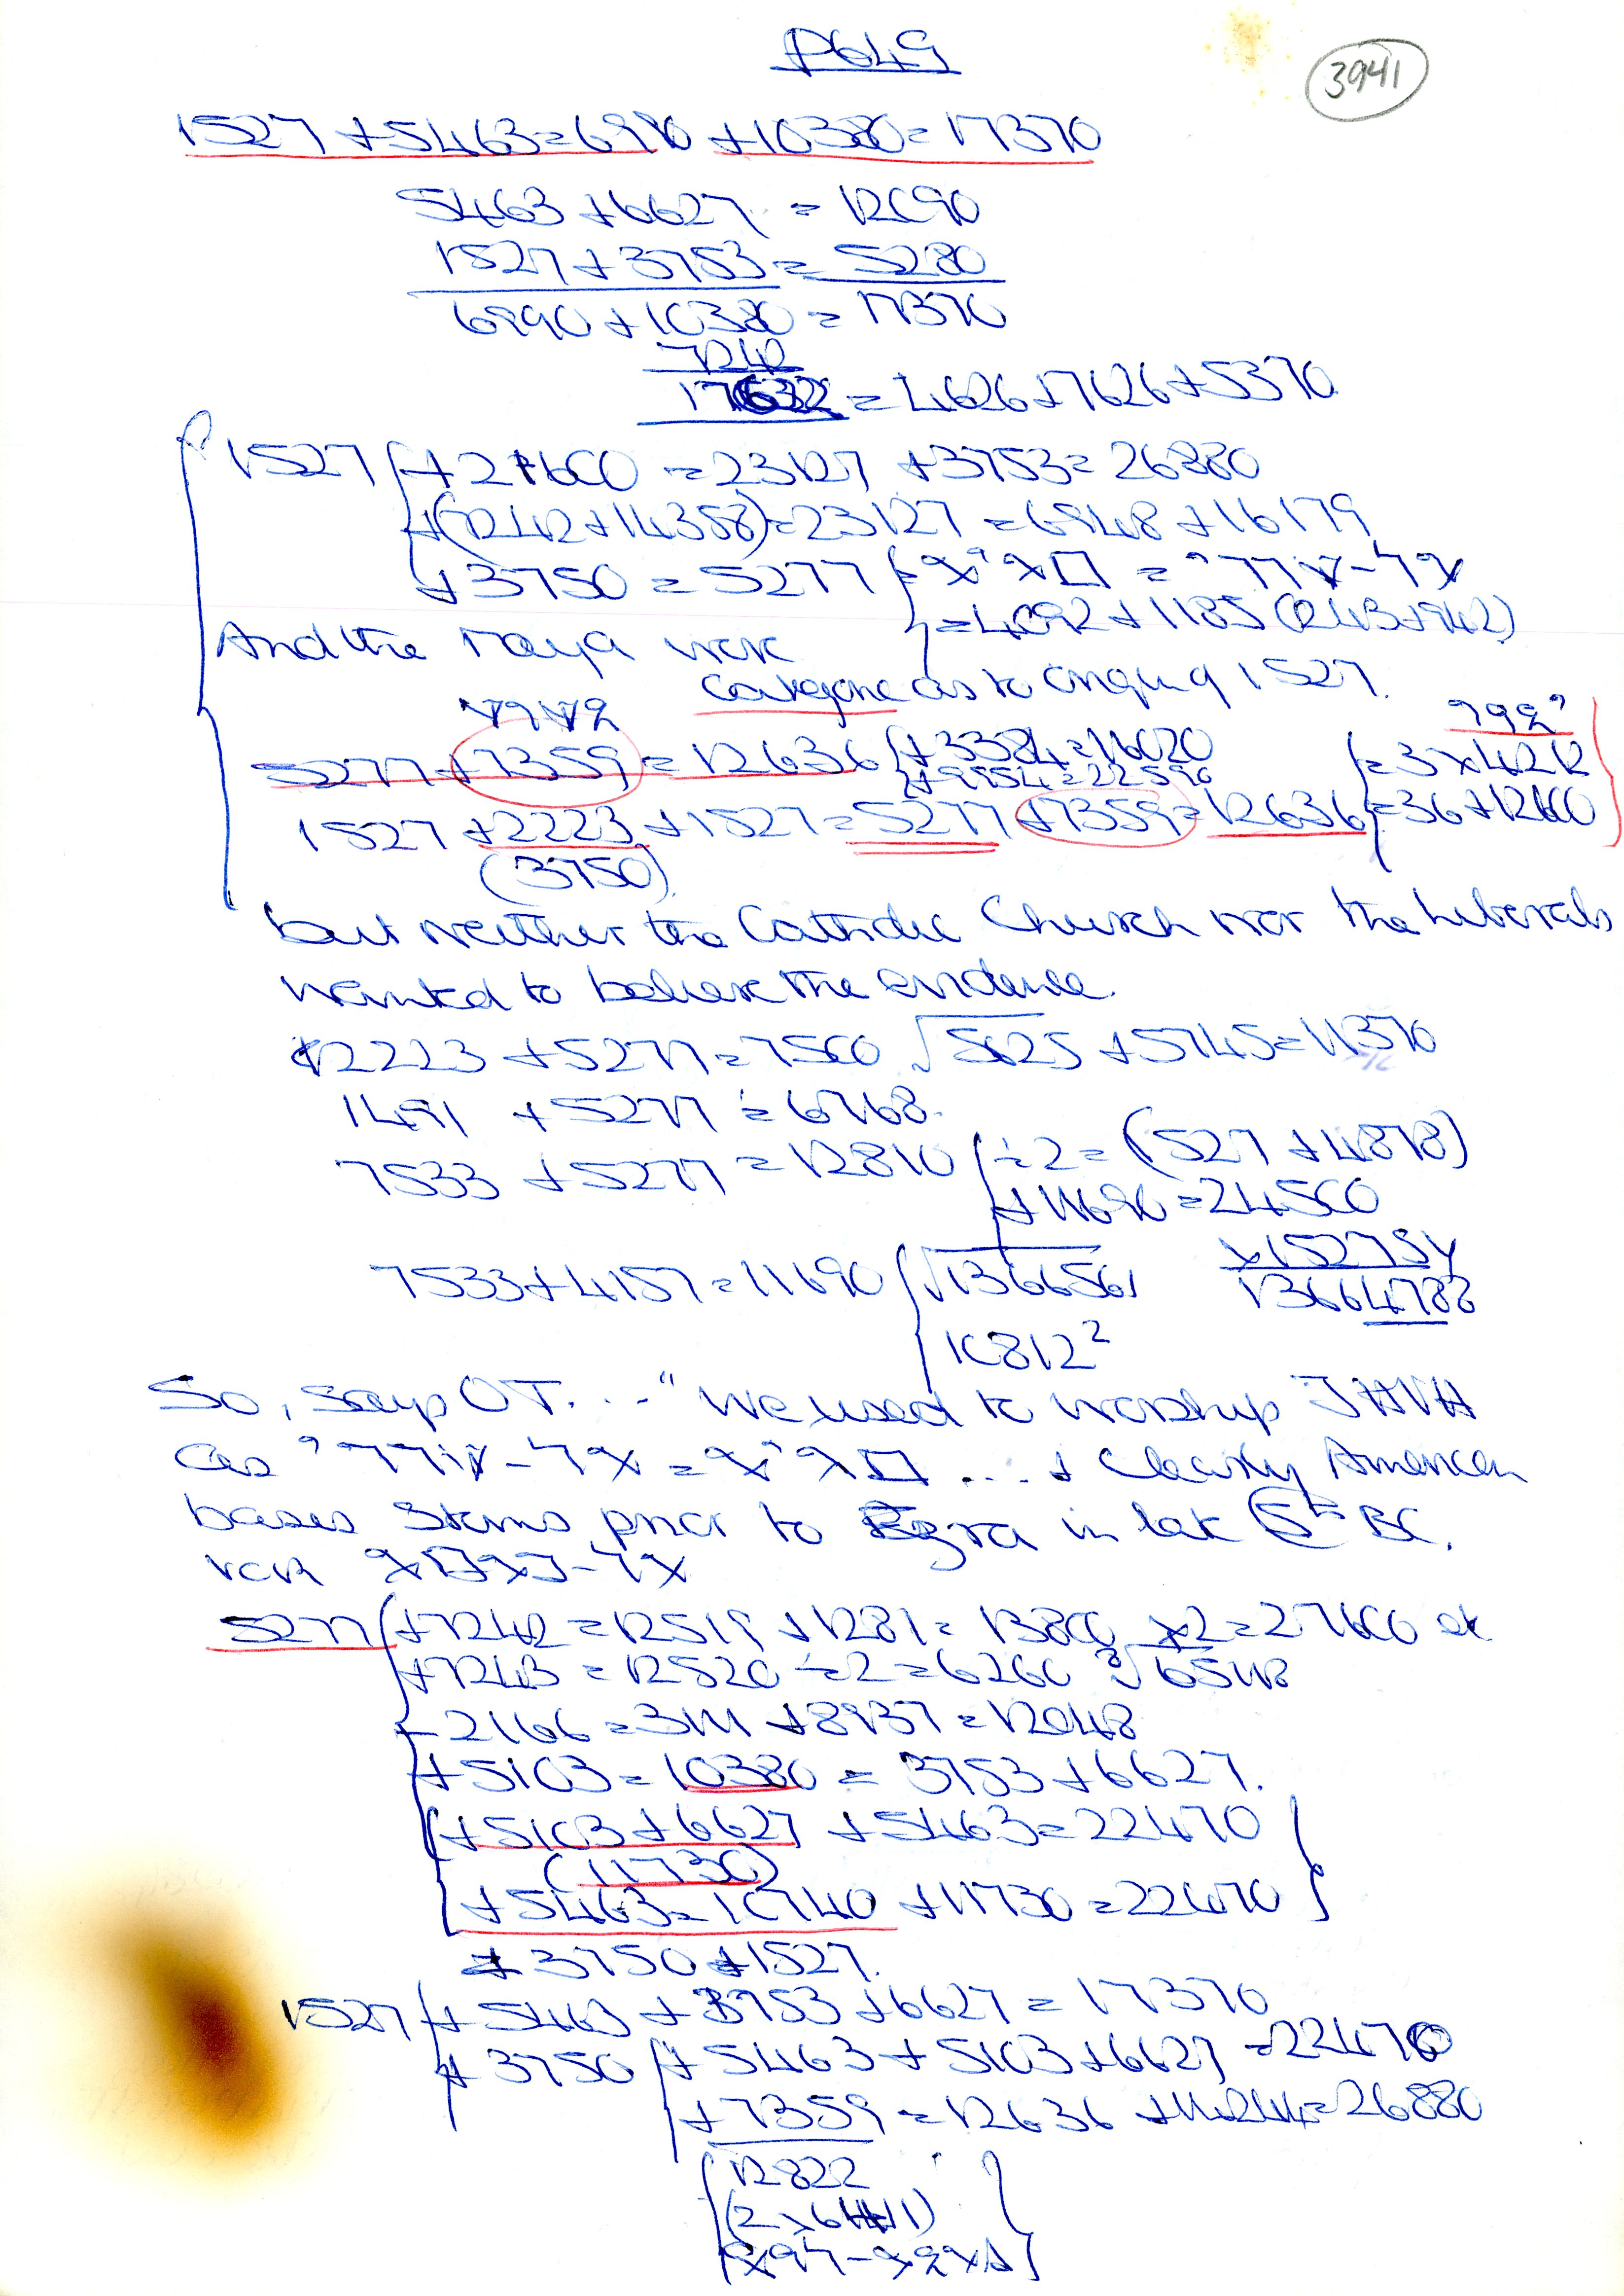 P649
3941
1527 + 5463 = 6990 + 10380 = 17370
5463 + 6627 = 12090
1527 + 3753 = 5280
6990 + 10380 = 17370
7242
= 4626 + 7626 + 5370
1527 + 21600 = 23127 + 3753 = 26880
+ (7242 + 14358) = 23127 = 6948 + 16179
+ 3750 = 5277
= 4092 + 1185 (243 + 942)
And the Maya were
categoric as to origin of 1527.
5277 + 7359 = 12636 + 3384 = 16020
= 3 x 4212
1527 + 2223 + 1527 = 5277 + 7359 = 12636 = 36 + 12600
(3750)
but neither the Catholic Church nor the Liberals
wanted to believe the evidence.
2223 + 5277 = 7500 √5625 + 5745 = 11370
1491 + 5277 = 6768.
7533 + 5277 = 12810 ÷ 2 = (1527 + 4878)
+ 11690 = 24500
7533 + 4157 = 11690 √1366561
10812²
So, says OT... "We used to worship JHVH
as ... & clearly American
bases stems prior to Ezra in late 5th BC.
5277 + 7242 = 12519 + 1281 = 13800 x 2 = 27600 etc
+ 7243 = 12520 ÷ 2 = 6260
- 2166 = 3111 + 8937 = 12048
+ 5103 = 10380 = 3753 + 6627.
+ 5103 + 6627 + 5463 = 22470
(11730)
+ 5463 = 10740 + 11730 = 22470
= 3750 + 1527.
1527 + 5463 + 3753 + 6627 = 17370
+ 3750 + 5463 + 5103 + 6627 = 22470
+ 7359 = 12636 + 14244 = 26880
12822
(2 x 6411)